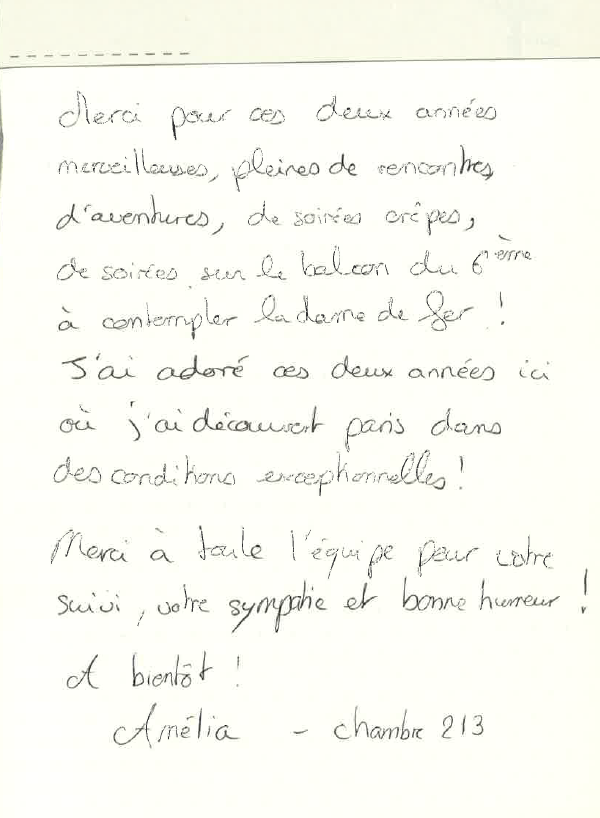 Merci pour ces deux années
merveilleuses, pleines de rencontres,
d'aventures, de soirées crêpes,
de soirées sur le balcon du 6ème
à contempler la dame de fer !
J'ai adoré ces deux années ici
où j'ai découvert paris dans
des conditions exceptionnelles !
Merci à toute l'équipe pour votre
suivi, votre sympathie et bonne humeur !
A bientôt !
Amélia - chambre 213